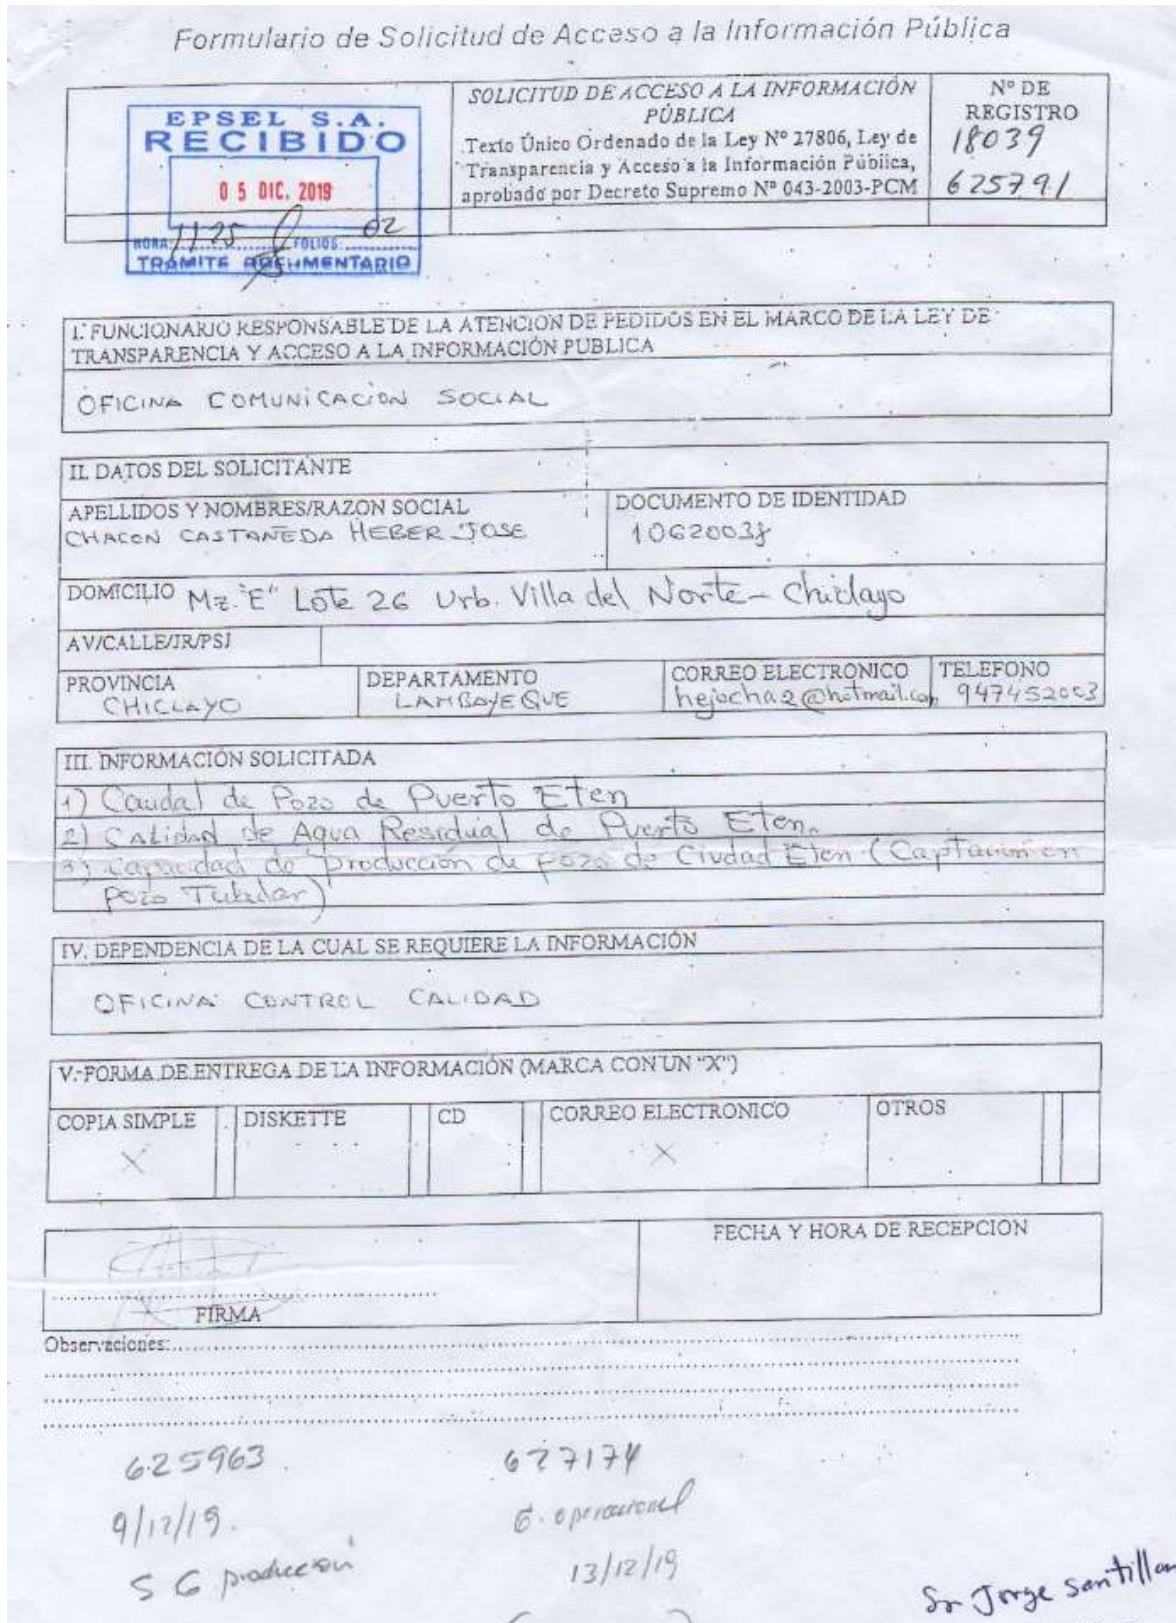 Formulario de Solicitud de Acceso a la Información Pública
EPSEL S.A.
RECIBIDO
05 DIC. 2019
HORA: 11 25 FOLIOS: 02
TRAMITE DOCUMENTARIO
SOLICITUD DE ACCESO A LA INFORMACIÓN
PÚBLICA
Texto Único Ordenado de la Ley Nº 27806, Ley de
Transparencia y Acceso a la Información Pública,
aprobado por Decreto Supremo Nº 043-2003-PCM
Nº DE
REGISTRO
18039
625791
I. FUNCIONARIO RESPONSABLE DE LA ATENCION DE PEDIDOS EN EL MARCO DE LA LEY DE
TRANSPARENCIA Y ACCESO A LA INFORMACIÓN PUBLICA
OFICINA COMUNICACION SOCIAL
II. DATOS DEL SOLICITANTE
APELLIDOS Y NOMBRES/RAZON SOCIAL
CHACON CASTAÑEDA HEBER JOSE
DOCUMENTO DE IDENTIDAD
10620038
DOMICILIO Mz. "E" Lote 26 Urb. Villa del Norte - Chiclayo
AV/CALLE/JR/PSJ
PROVINCIA
CHICLAYO
DEPARTAMENTO
LAMBAYEQUE
CORREO ELECTRONICO
hejocha2@hotmail.com
TELEFONO
947452003
III. INFORMACIÓN SOLICITADA
1) Caudal de Pozo de Puerto Eten
2) Calidad de Agua Residual de Puerto Eten.
3) Capacidad de producción de pozo de Ciudad Eten (Captacion en
Pozo Tubular)
IV. DEPENDENCIA DE LA CUAL SE REQUIERE LA INFORMACIÓN
OFICINA CONTROL CALIDAD
V. FORMA DE ENTREGA DE LA INFORMACIÓN (MARCA CON UN "X")
COPIA SIMPLE
X
DISKETTE
CD
CORREO ELECTRONICO
X
OTROS
FIRMA
FECHA Y HORA DE RECEPCION
Observaciones:
625963
9/12/19.
S G producción
627174
G. operacional
13/12/19
Sr Jorge Santillan